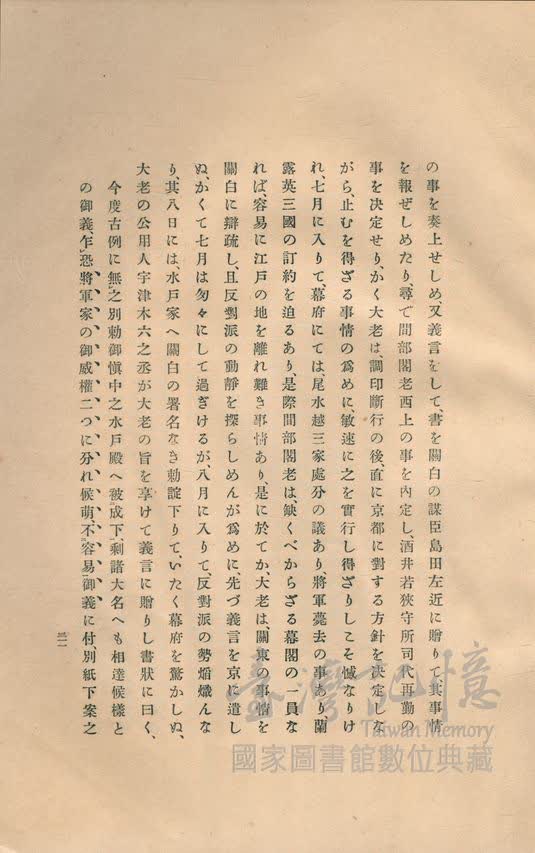 の事を奏上せしめ、又義言をして、書を關白の謀臣島田左近に贈りて、其事情
を報ぜしめたり、尋で間部閣老西上の事を內定し、酒井若狹守所司代再勤の
事を決定せり、かく大老は、調印斷行の後、直に京都に對する方針を決定しな
がら、止むを得ざる事情の爲めに、敏速に之を實行し得ざりしこそ憾なりけ
れ、七月に入りて、幕府にては、尾水越三家處分の議あり、將軍薨去の事あり蘭
露英三國の訂約を迫るあり、是際間部閣老は、缺くべからざる幕閣の一員な
れば、容易に江戸の地を離れ難き事情あり、是に於てか、大老は、關東の事情を
關白に辯疏し、且反對派の動靜を探らしめんが爲めに、先づ義言を京に遣し
ぬ、かくて七月は匆々にして過ぎけるが、八月に入りて、反對派の勢焰熾んな
り、其八日には、水戸家へ關白の署名なき勅諚下りて、いたく幕府を驚かしぬ、
大老の公用人宇津木六之丞が大老の旨を享けて義言に贈りし書狀に曰く、
今度古例に無之別勅御愼中之水戸殿へ被成下、剩諸大名へも相達候樣と
の御義、乍恐將軍家の御威權二つに分れ候萌、不容易御義に付、別紙下案之
三一
臺灣記憶
Taiwan Memory
國家圖書館數位典藏